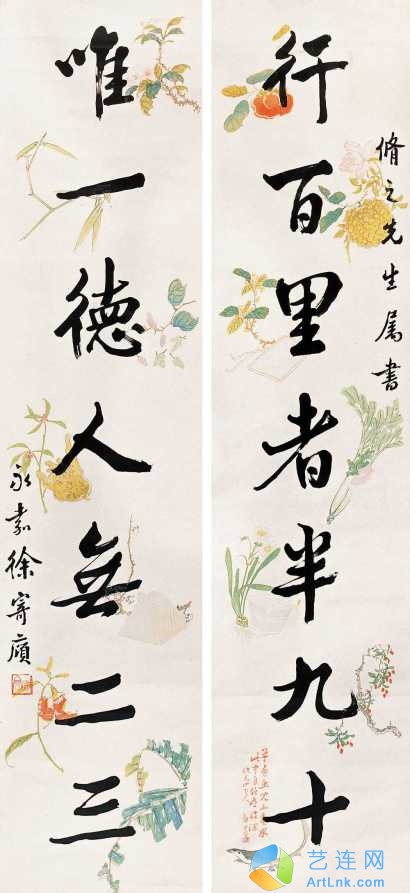 脩之先生属書
行百里者半九十
唯一德人無二三
永嘉徐寄廎
艺连网
ArtLnk.com